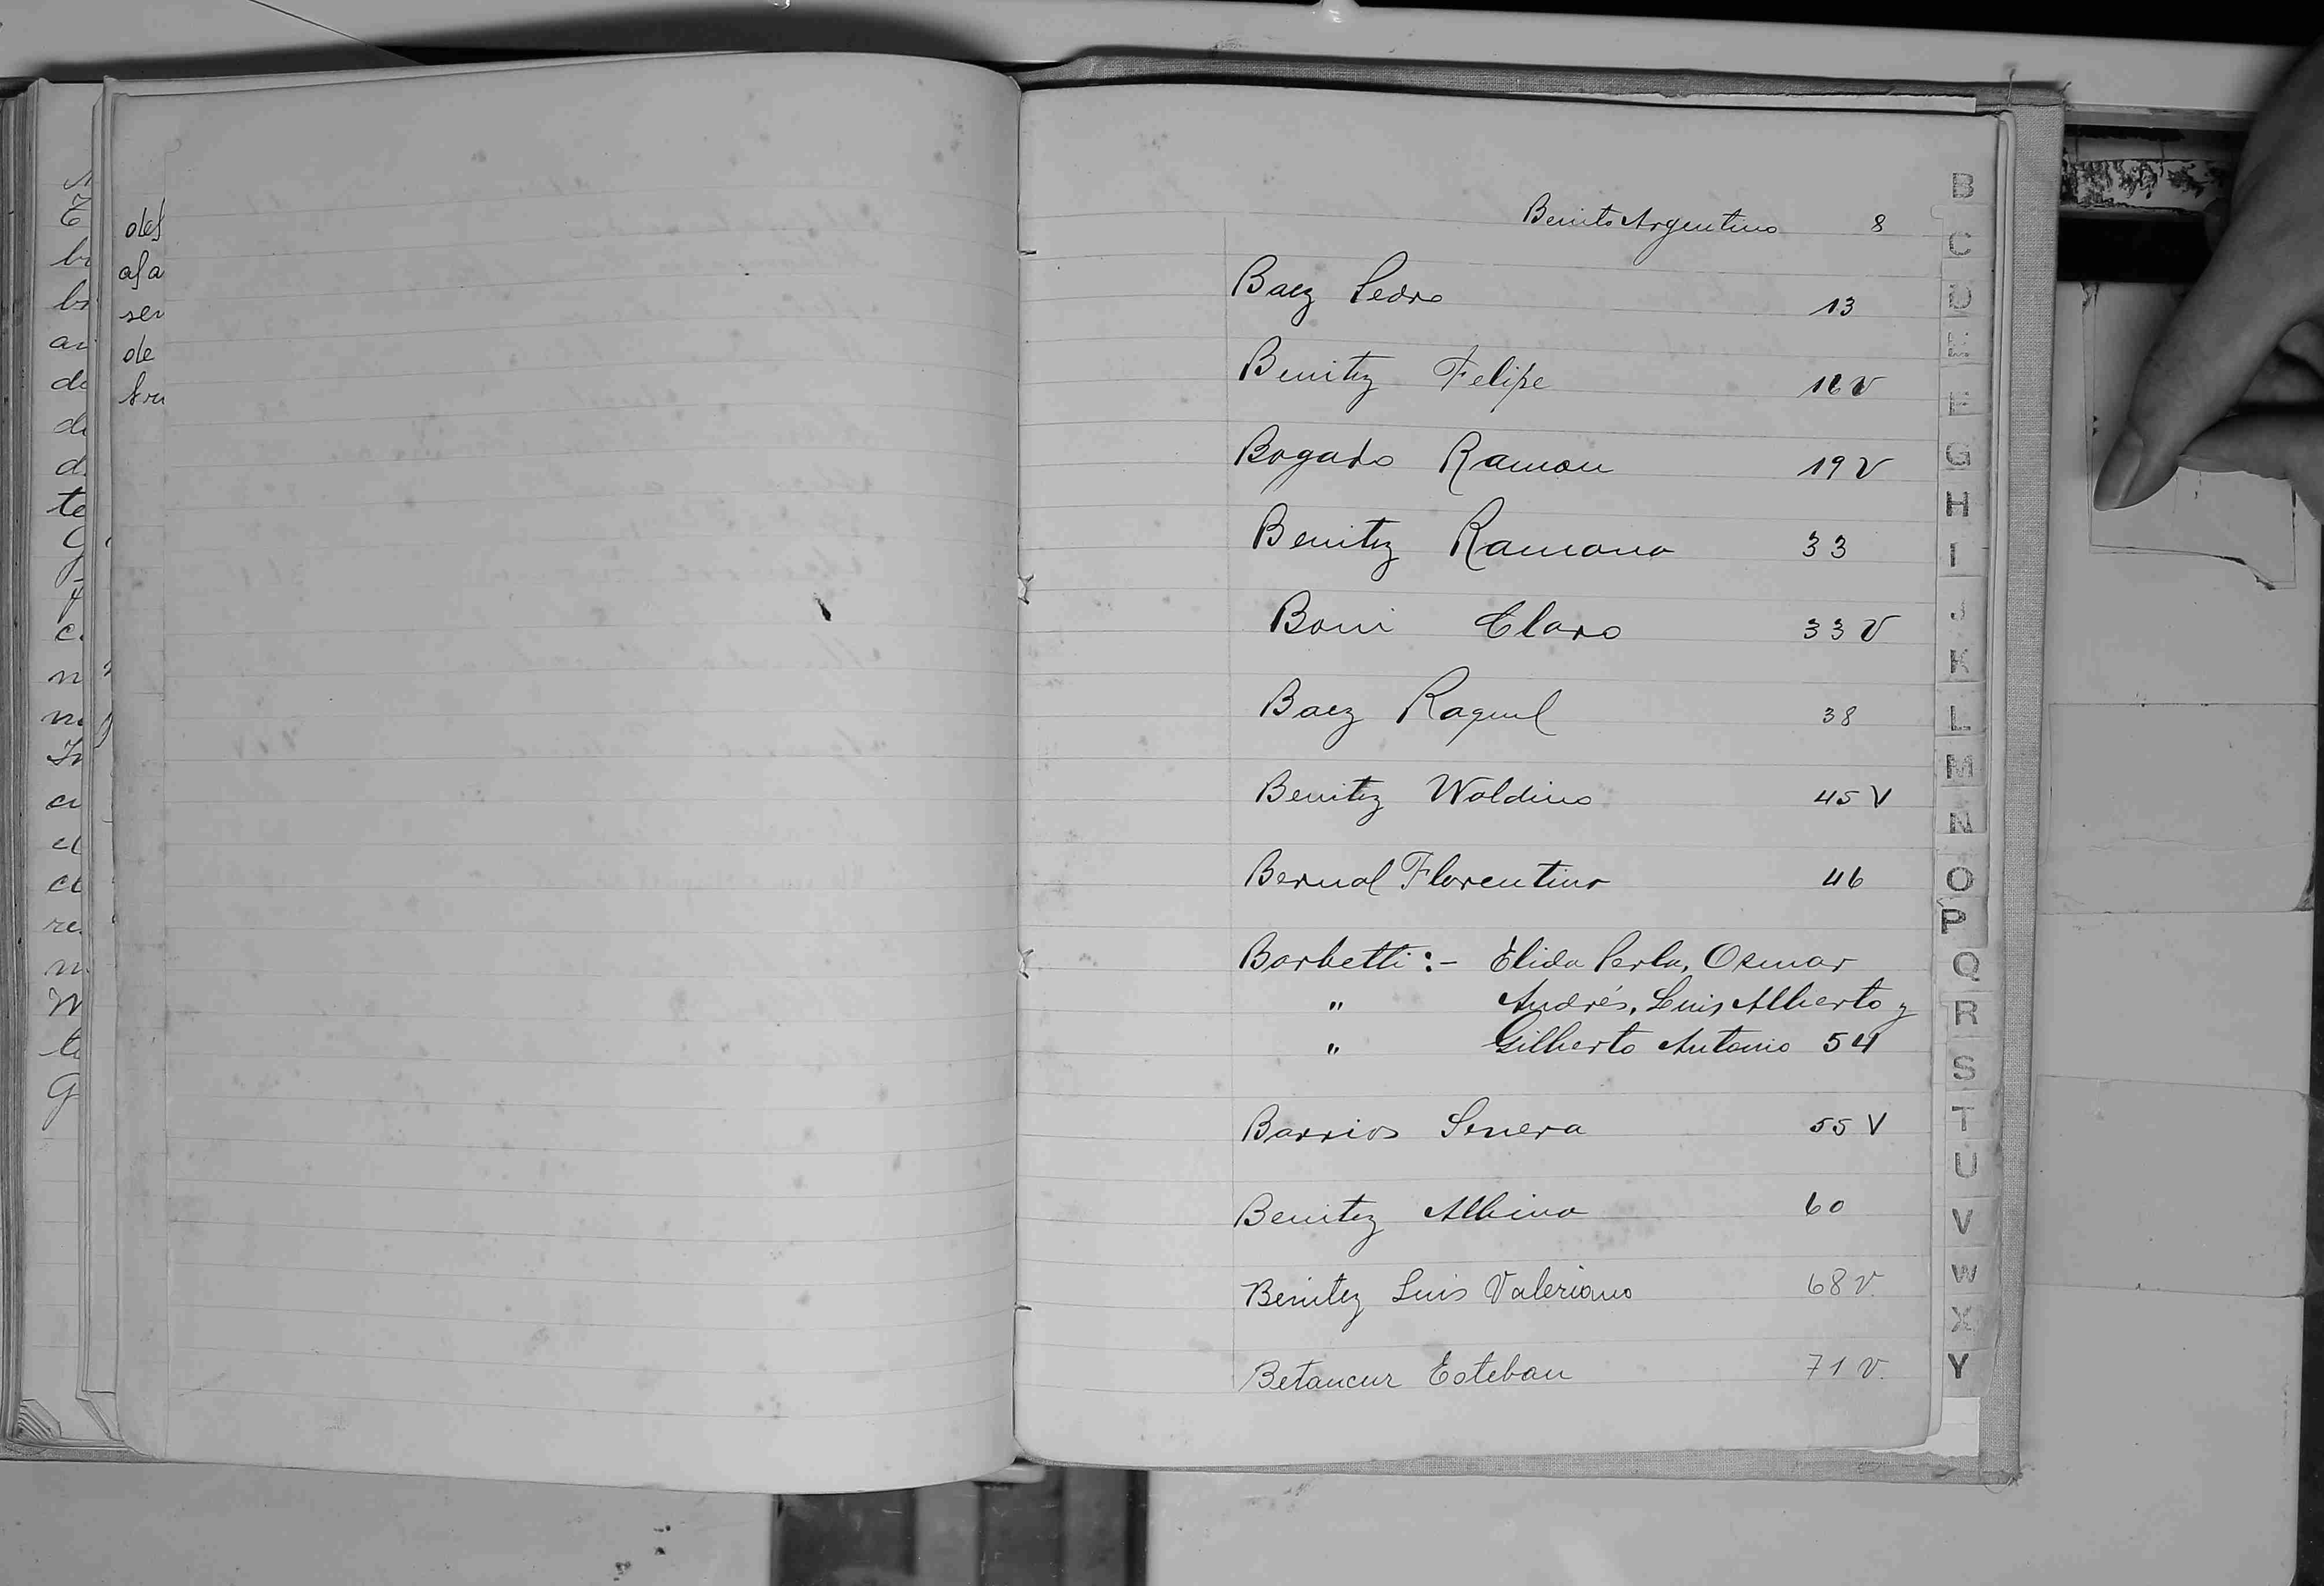 Benito Argentino 8
Baez Pedro 13
Benitez Felipe 16 V
Bogado Ramon 19 V
Benitez Ramona 33
Boni Claro 33 V
Baez Raquel 38
Benitez Waldino 45 V
Bernal Florentino 46
Barbetti :- Elida Perla, Osmar
" Andrés, Luis Alberto y
" Gilberto Antonio 54
Barrios Senera 55 V
Benitez Albina 60
Benitez Luis Valeriano 68 V.
Betancur Esteban 71 V.
B
C
D
E
F
G
H
I
J
K
L
M
N
O
P
Q
R
S
T
U
V
W
X
Y